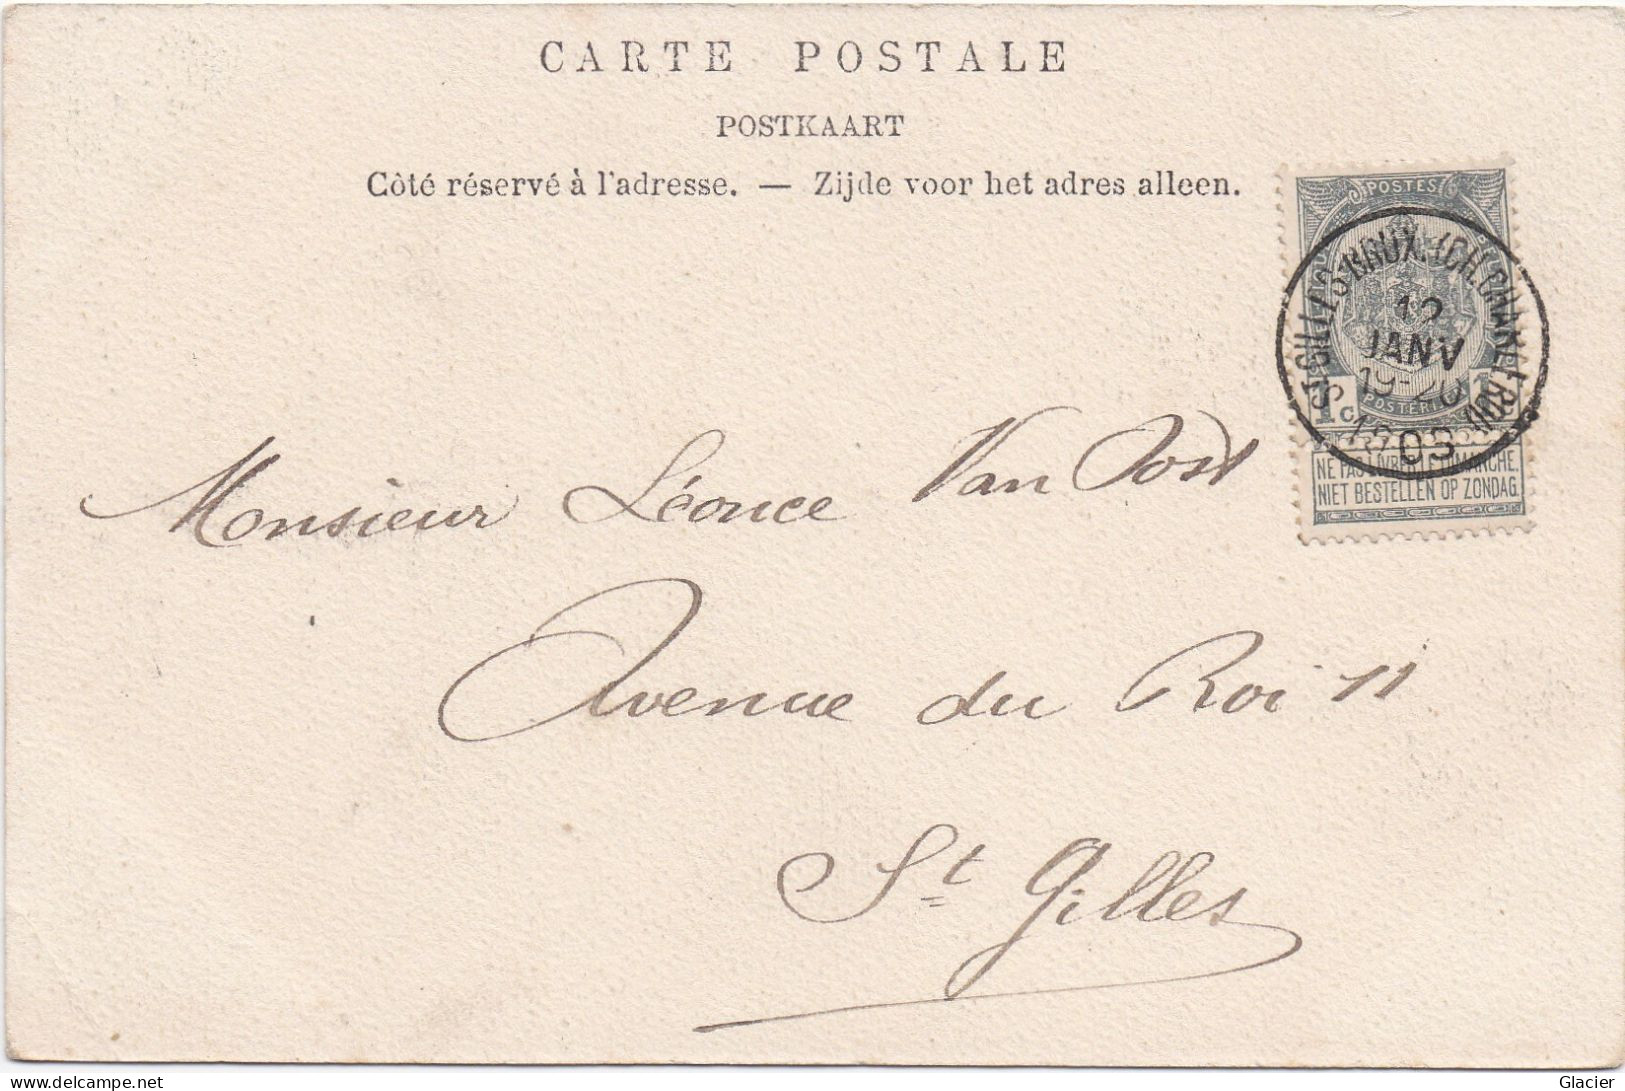 CARTE POSTALE
POSTKAART
Côté réservé à l'adresse. — Zijde voor het adres alleen.
POSTES
ST-GILLES-BRUX. (CH. CHARLEROI)
JANV
19-20
1903
1c
NE PAS LIVRER LE DIMANCHE.
NIET BESTELLEN OP ZONDAG.
Monsieur Léonce Van Oost
Avenue du Roi 11
St Gilles
www.delcampe.net
Glacier